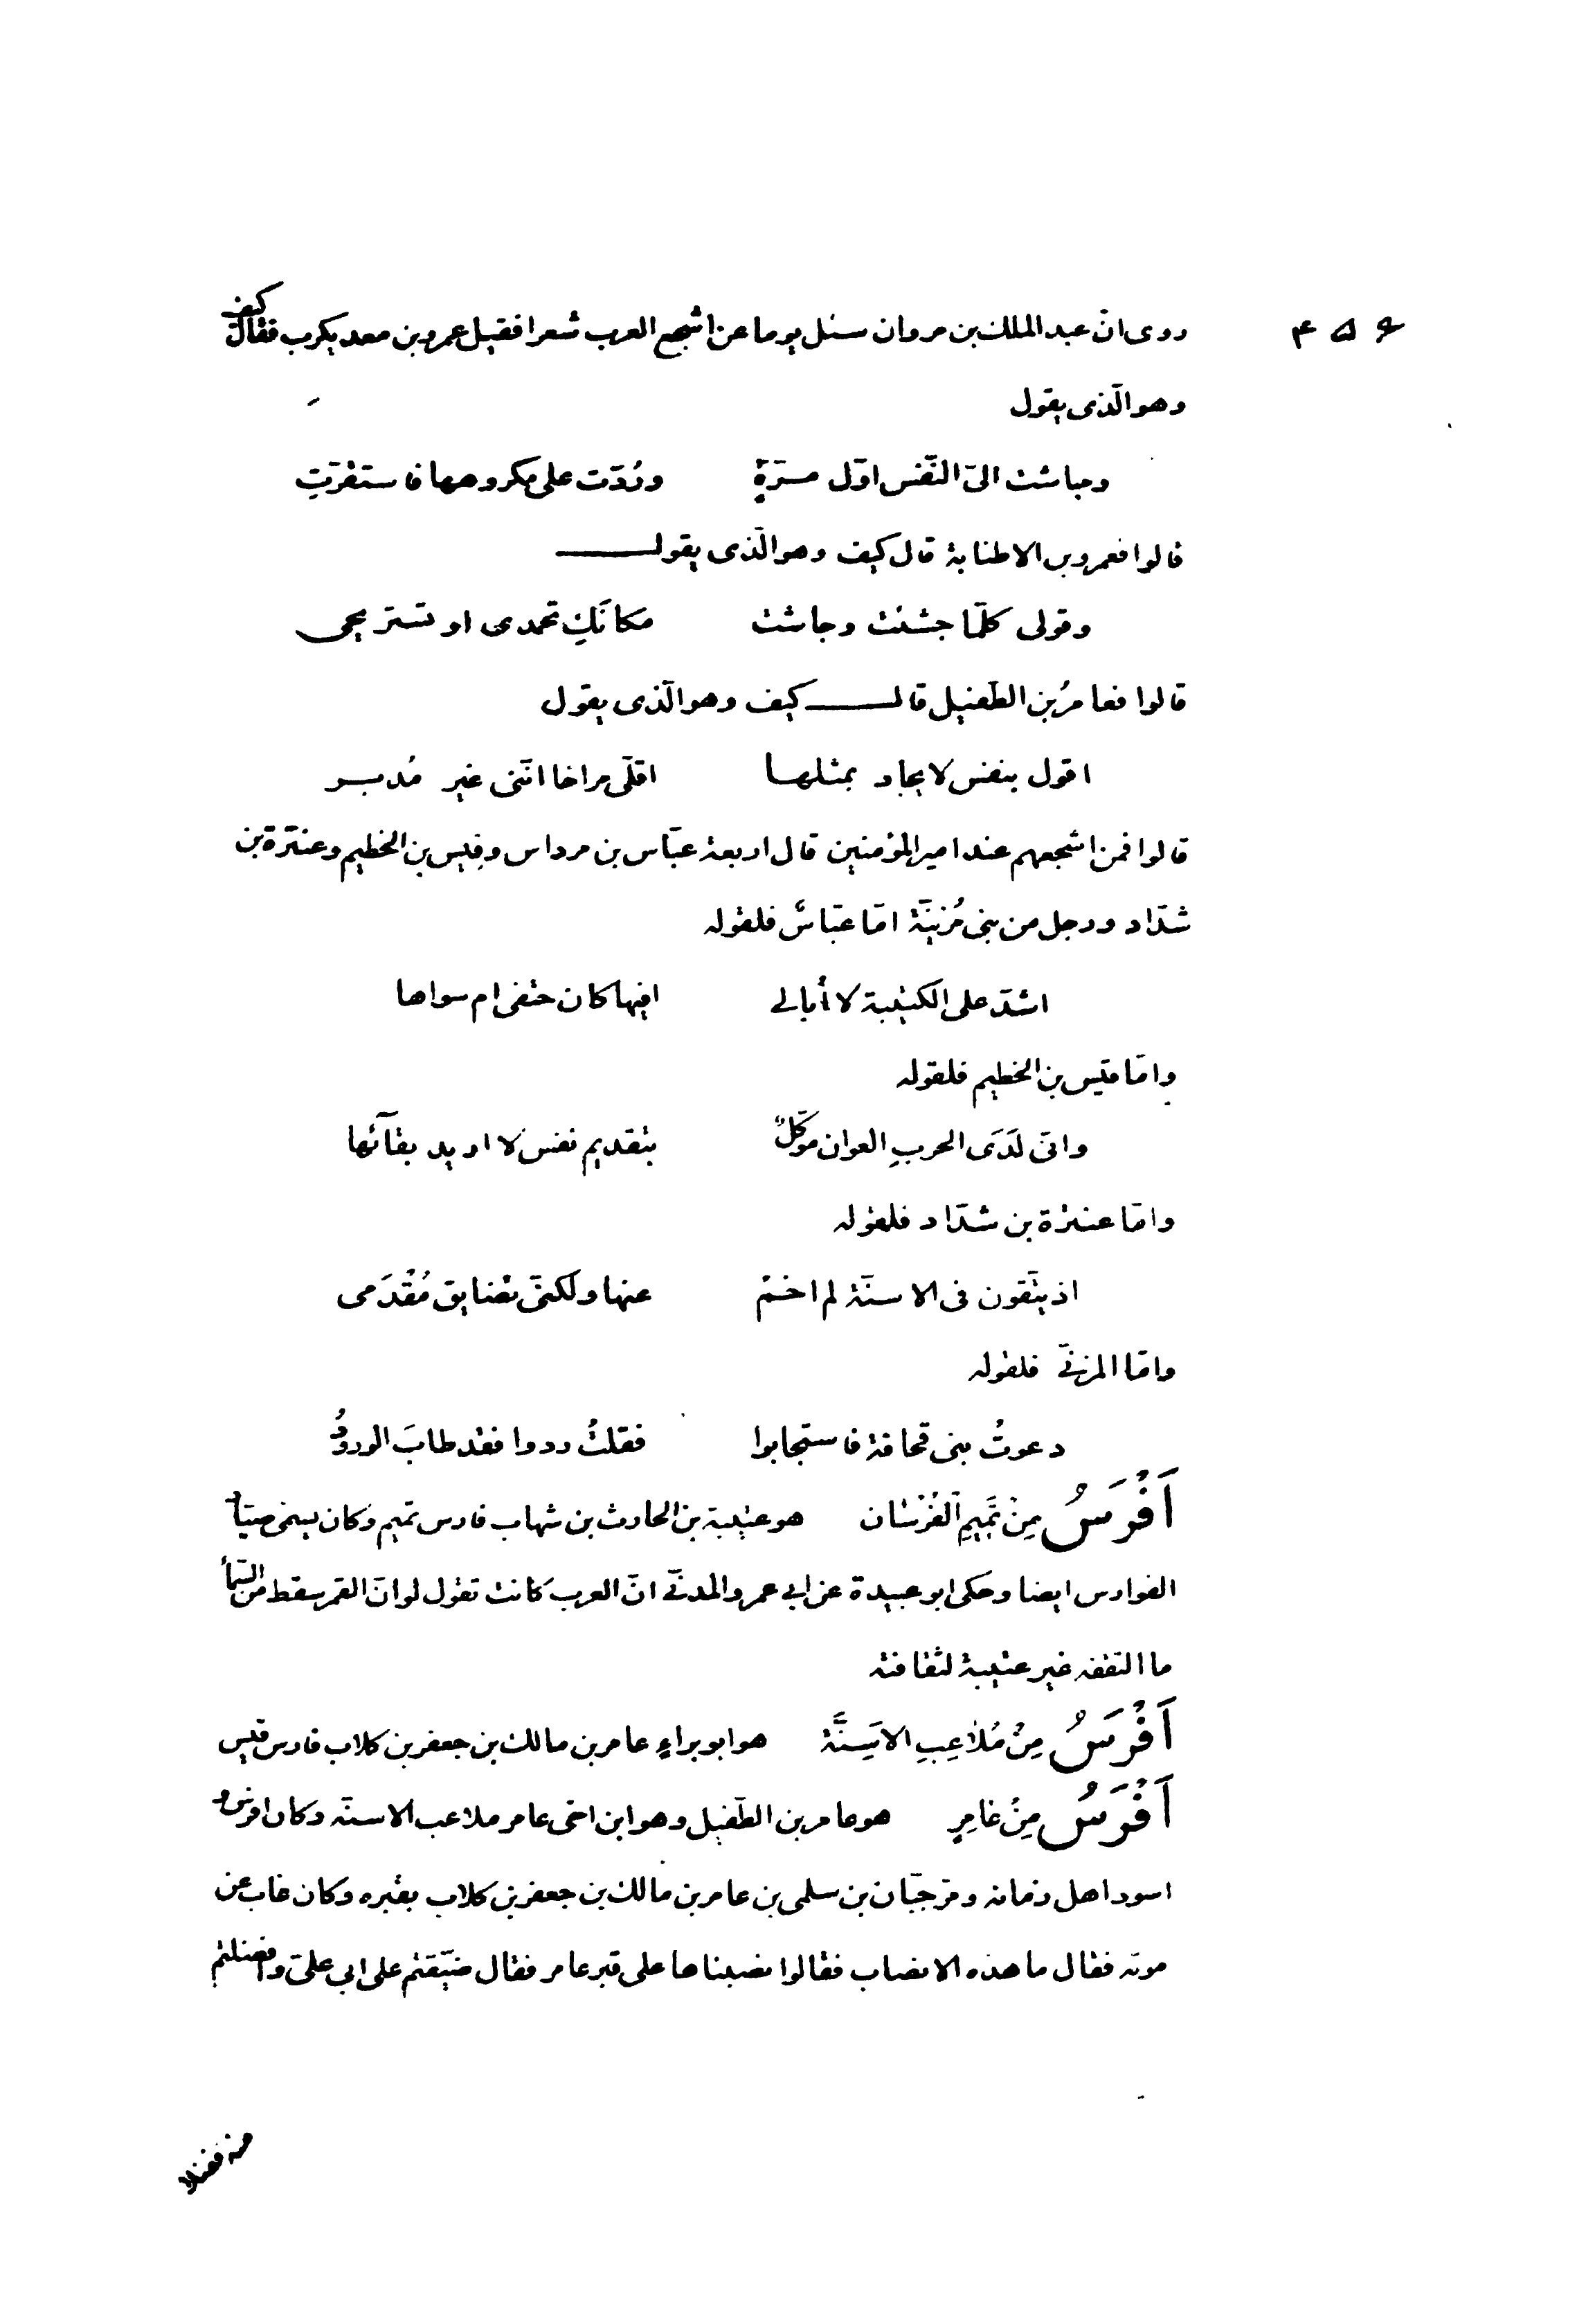 ۴۵۶
روى انّ عبد الملك بن مروان سئل يوما عن اشجع العرب شعرا فقيل عمرو بن معديكرب فقال كيف
وهو الّذى يقول
وجاشت الىّ النّفس اوّل مرّةٍ ورُدّت على مكروهها فاستقرّتِ
قالوا فعمرو بن الاطنابة قال كيف وهو الّذى يقول
وقولى كلّما جشئت وجاشت مكانَكِ تحمدى او تستريحى
قالوا فعامرُ بن الطّفيل قال كيف وهو الّذى يقول
اقول بنفس لا يجاد بمثلها اقلّى مراحا انّنى غير مُدبر
قالوا فمن اشجعهم عند امير المؤمنين قال اربعة عبّاس بن مرداس وقيس بن الخطيم وعنترة بن
شدّاد ورجل من بنى مُزينّة امّا عبّاسٌ فلقوله
اشدّ على الكتيبة لا أبالى افيها كان حتفى ام سواها
وامّا قيس بن الخطيم فلقوله
وانّى لَدَى الحربِ العوان موكّلٌ بتقديم نفس لا اريد بقآئها
وامّا عنترة بن شدّاد فلقوله
اذ يتّقون فى الاسنّة لم اخمْ عنها ولكنّى تضايق مُقْدَمى
وامّا المزنىّ فلقوله
دعوتُ بنى قحافة فاستجابوا فقلتُ ردوا فقد طابَ الورودُ
اَفْرَسُ مِنْ تَمِيمِ الفُرْسَان هو عتيبة بن الحارث بن شهاب فارس تميم وكان يسمّى صيّاد
الفوارس ايضا وحكى ابو عبيدة عن ابى عمرو المدنىّ انّ العربَ كانت تقول لو انّ القمر سقط من السّماء
ما التقفه غير عتيبة لثقافته
اَفْرَسُ مِنْ مُلاعِبِ الاَسِنَّة هو ابو براءٍ عامر بن مالك بن جعفر بن كلاب فارس قيس
اَفْرَسُ مِنْ عَامِرٍ هو عامر بن الطّفيل وهو ابن اخى عامر ملاعب الاسنّه وكان افرس و
اسود اهل زمانه ومرّ حبّان بن سلمى بن عامر بن مالك بن جعفر بن كلاب بقبره وكان غاب عن
موته فقال ما هذه الانصاب فقالوا نصبناها على قبر عامر فقال ضيّقتم على ابى علىّ وافضلتم
منه فضلا